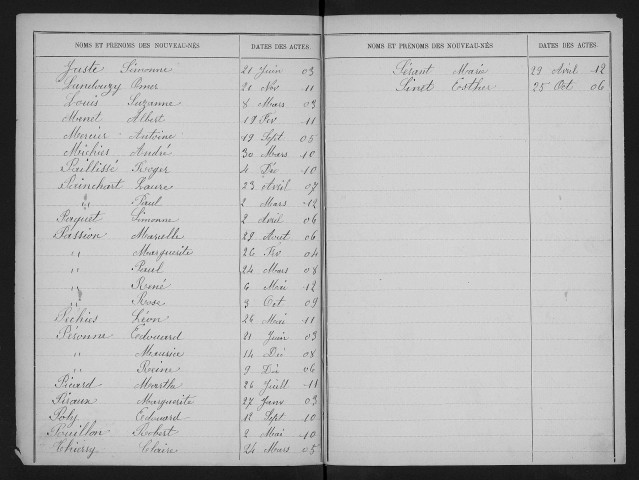 NOMS ET PRÉNOMS DES NOUVEAU-NÉS DATES DES ACTES
Juste Simonne 21 Juin 03
Omer 21 Nov 11
Louis Suzanne 8 Mars 03
Menet Albert 19 Fev 11
Mercier Antoine 19 Sept 05
Michies André 30 Mars 10
Paillissé Roger 4 Fév 10
Painchart Laure 23 Avril 07
" Paul 2 Mars 12
Paquet Simonne 2 Avril 06
Passion Marielle 29 Aout 06
" Marguerite 26 Fev 04
" Paul 24 Mars 08
" René 6 Mai 12
" Rose 3 Oct 09
Pichies Léon 26 Mai 11
Péronne Edouard 21 Juin 03
" Maurice 14 Déc 08
" Reine 9 Déc 06
Picard Marthe 26 Juill 11
Piraux Marguerite 27 Janv 03
Poly Edouard 18 Sept 10
Pouillon Robert 2 Mai 10
Thierry Claire 24 Mars 05
NOMS ET PRÉNOMS DES NOUVEAU-NÉS DATES DES ACTES
Sérant Marie 29 Avril 12
Sinet Esther 25 Oct 06